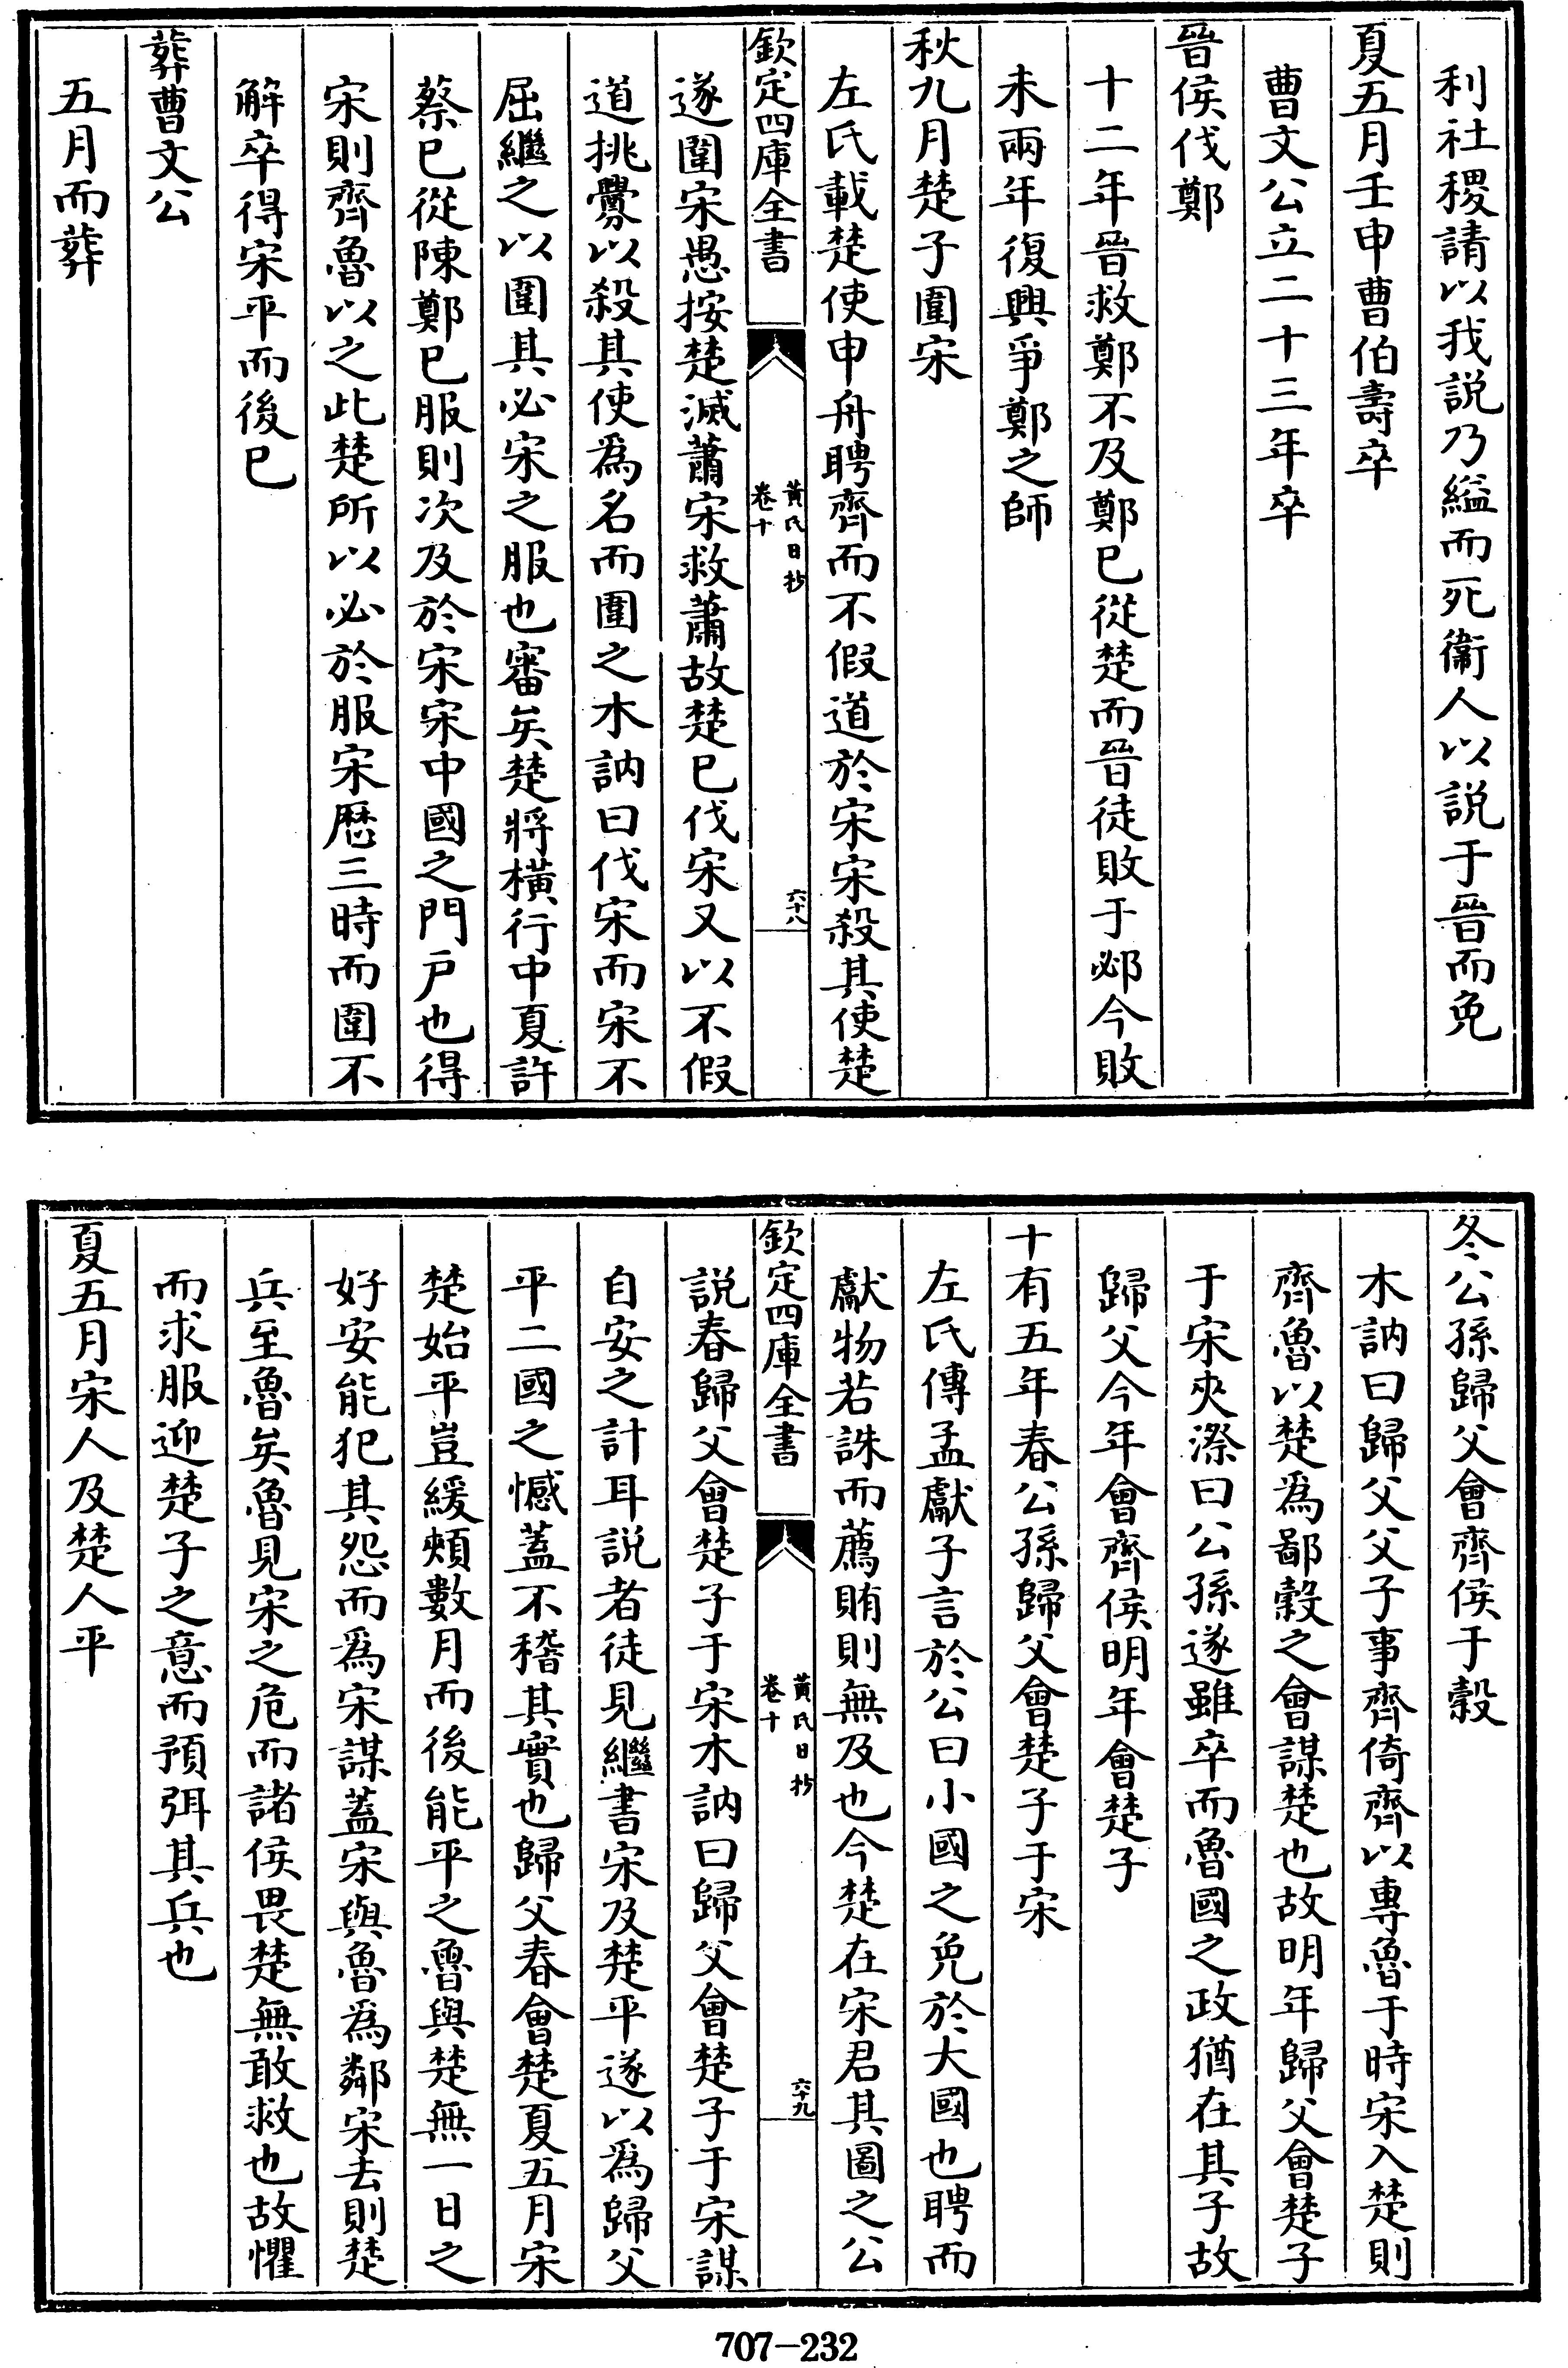 利社稷請以我説乃縊而死衞人以説于晉而免
夏五月壬申曹伯壽卒
曹文公立二十三年卒
晉侯伐鄭
十二年晉救鄭不及鄭已從楚而晉徒敗于邲今敗
未兩年復興爭鄭之師
秋九月楚子圍宋
左氏載楚使申舟聘齊而不假道於宋宋殺其使楚
欽定四庫全書
黃氏日抄
卷十
六十八
遂圍宋愚按楚滅蕭宋救蕭故楚已伐宋又以不假
道挑釁以殺其使爲名而圍之木訥曰伐宋而宋不
屈繼之以圍其必宋之服也審矣楚將橫行中夏許
蔡已從陳鄭已服則次及於宋宋中國之門戸也得
宋則齊魯以之此楚所以必於服宋厯三時而圍不
解卒得宋平而後已
葬曹文公
五月而葬
冬公孫歸父會齊侯于穀
木訥曰歸父父子事齊倚齊以專魯于時宋入楚則
齊魯以楚爲鄙穀之會謀楚也故明年歸父會楚子
于宋夾漈曰公孫遂雖卒而魯國之政猶在其子故
歸父今年會齊侯明年會楚子
十有五年春公孫歸父會楚子于宋
左氏傳孟獻子言於公曰小國之免於大國也聘而
獻物若誅而薦賄則無及也今楚在宋君其圖之公
欽定四庫全書
黃氏日抄
卷十
六十九
説春歸父會楚子于宋木訥曰歸父會楚子于宋謀
自安之計耳説者徒見繼書宋及楚平遂以爲歸父
平二國之憾蓋不稽其實也歸父春會楚夏五月宋
楚始平豈緩頰數月而後能平之魯與楚無一日之
好安能犯其怨而爲宋謀蓋宋與魯爲鄰宋去則楚
兵至魯矣魯見宋之危而諸侯畏楚無敢救也故懼
而求服迎楚子之意而預弭其兵也
夏五月宋人及楚人平
707-232